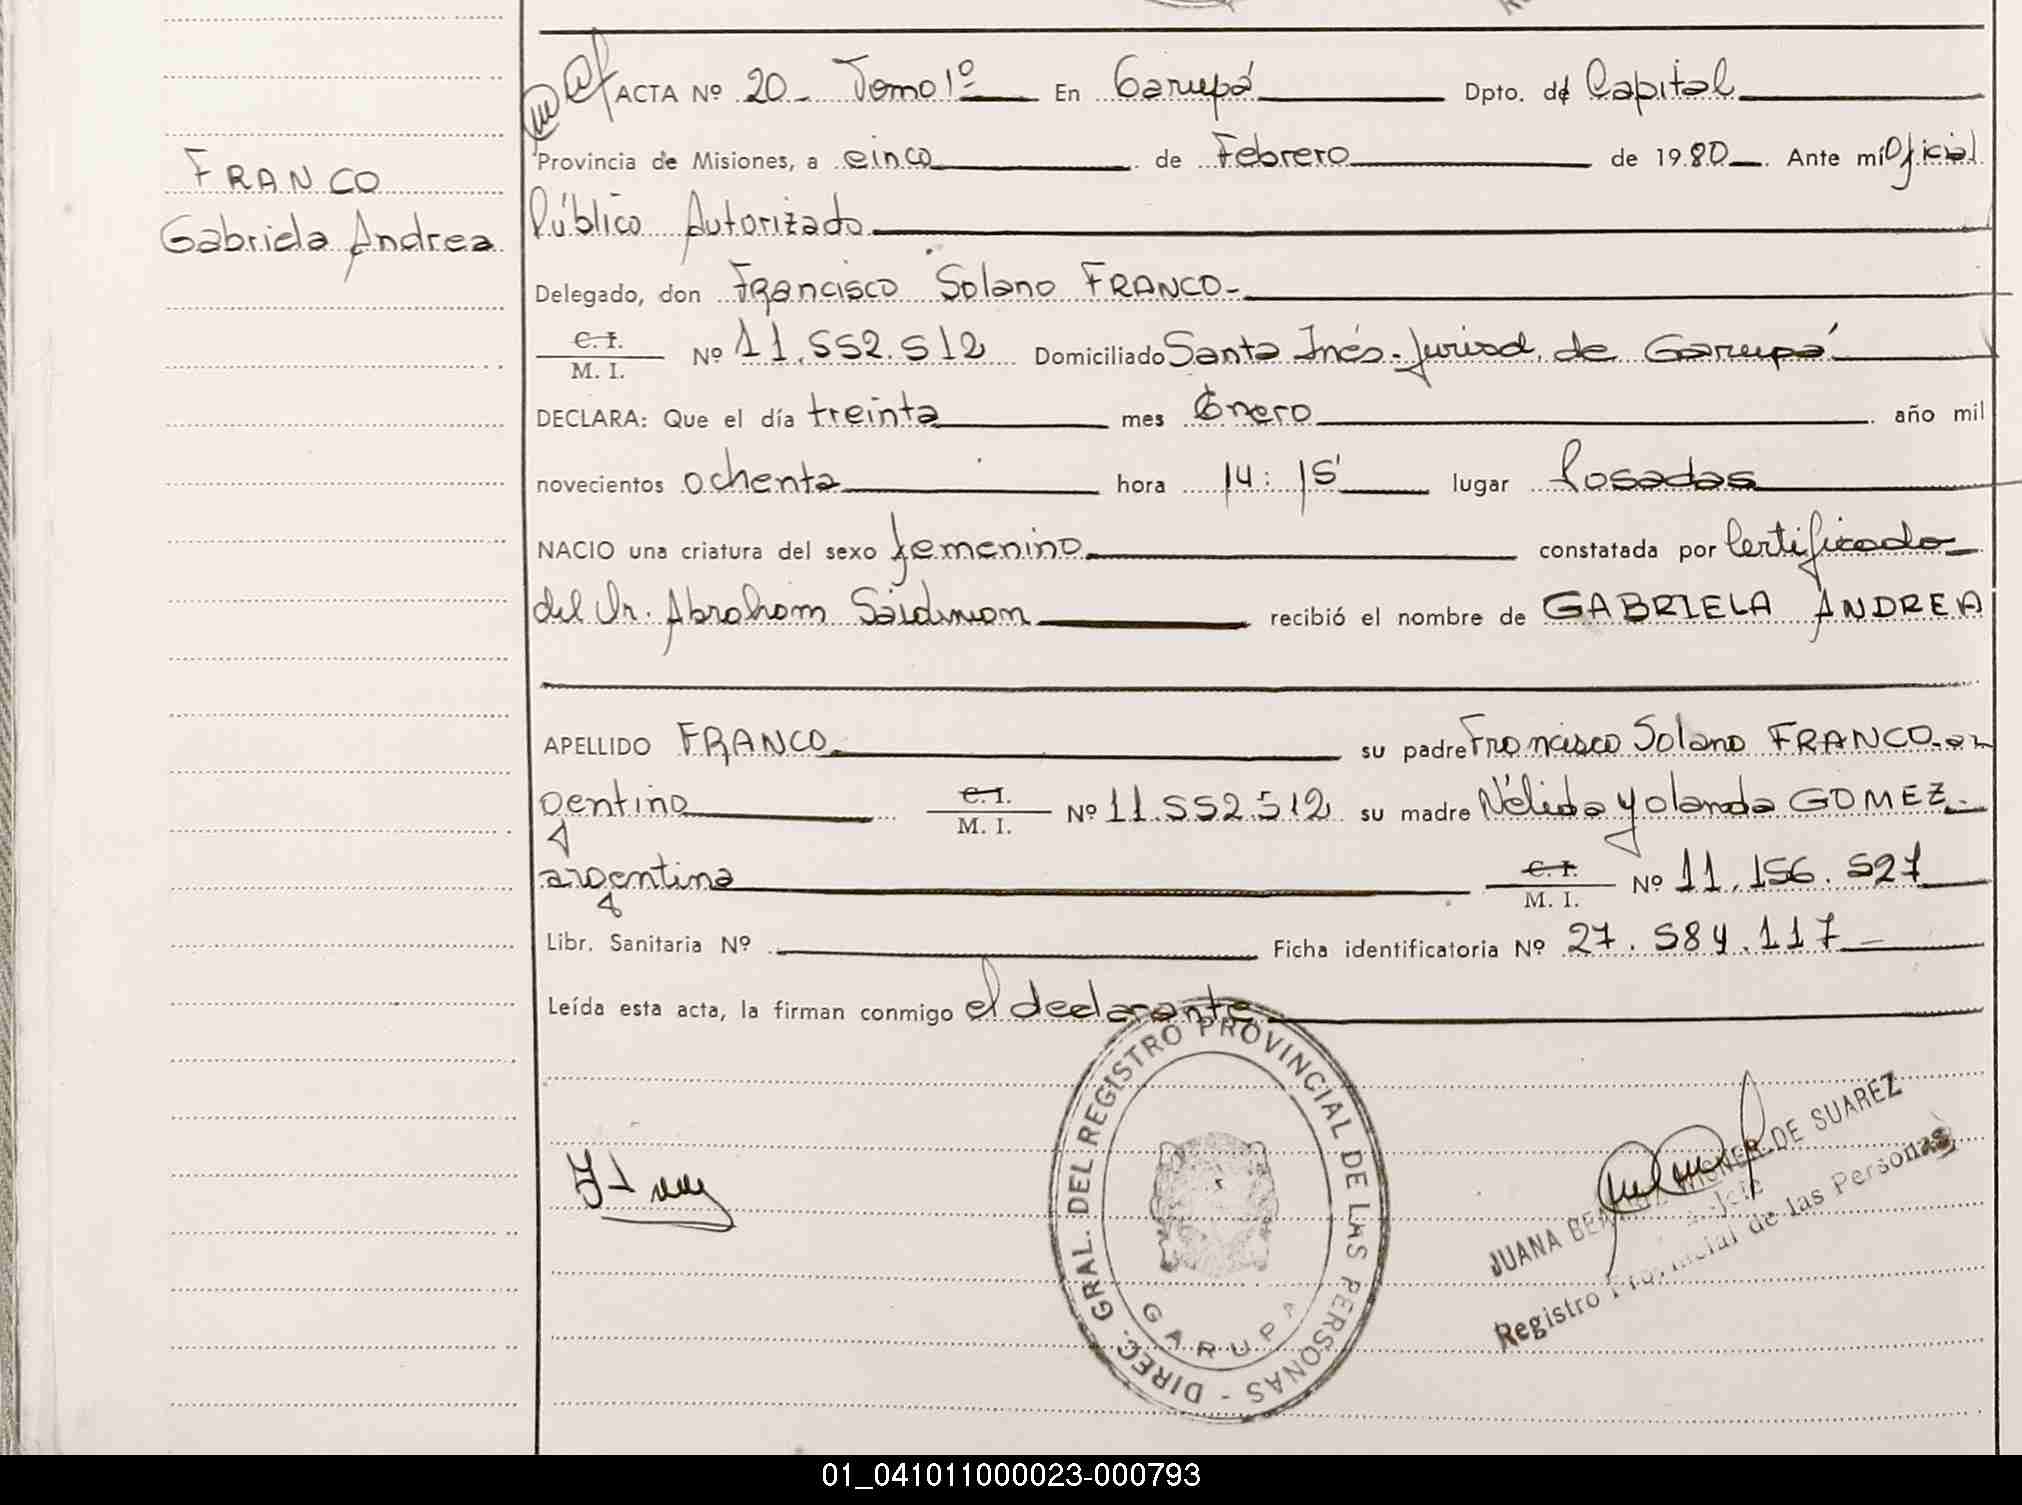 ACTA Nº 20 - Tomo 1º En Garupá Dpto. de Capital
Provincia de Misiones, a cinco de Febrero de 1980. Ante mí Oficial
FRANCO
Gabriela Andrea
Público Autorizado
Delegado, don Francisco Solano FRANCO-
C. I.
M. I. Nº 11.552.512 Domiciliado Santa Inés-Jurisd. de Garupá
DECLARA: Que el día treinta mes Enero año mil
novecientos ochenta hora 14:15' lugar Posadas
NACIO una criatura del sexo femenino constatada por Certificado
del Dr. Abraham Saidman recibió el nombre de GABRIELA ANDREA
APELLIDO FRANCO su padre Francisco Solano FRANCO-ar
gentino C. I. M. I. Nº 11.552.512 su madre Nélida Yolanda GOMEZ-
argentina C. I. M. I. Nº 11.156.527
Libr. Sanitaria Nº Ficha identificatoria Nº 27.584.117-
Leída esta acta, la firman conmigo el declarante
DIREC. GRAL. DEL REGISTRO PROVINCIAL DE LAS PERSONAS -
GARUPA
JUANA DE SUAREZ
Jefe
Registro Provincial de las Personas
01_041011000023-000793